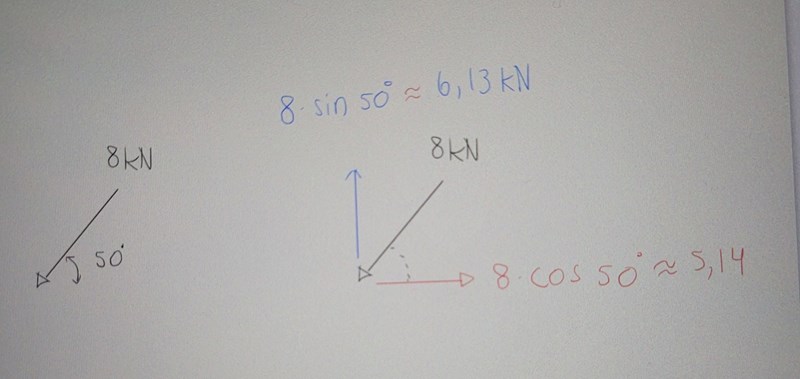 8·sin 50° ≈ 6,13 kN
8kN
8kN
50°
8·cos 50° ≈ 5,14